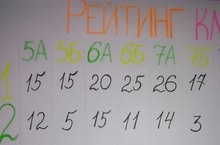 РЕЙТИНГ КЛ
5А 5Б 6А 6Б 7А 7Б
1 15 15 20 25 26 17
2 12 5 15 11 14 3